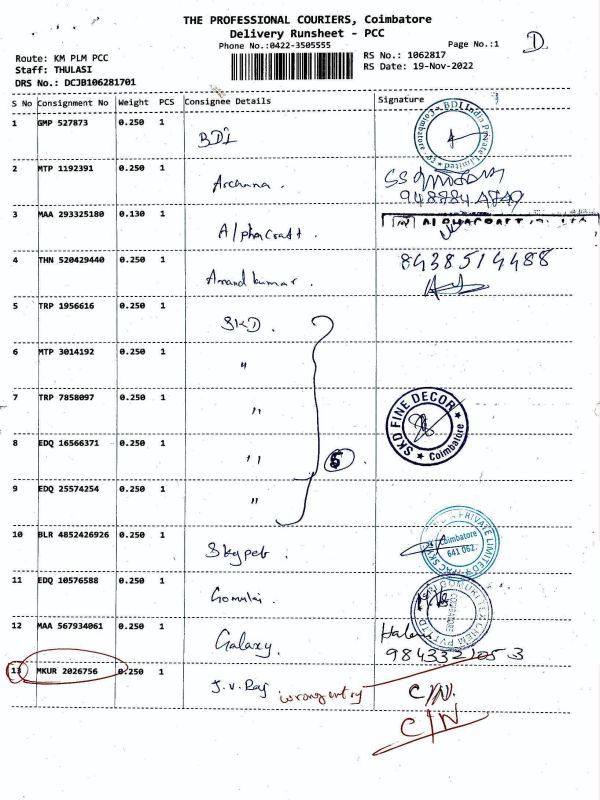 THE PROFESSIONAL COURIERS, Coimbatore
Delivery Runsheet - PCC
Phone No.:0422-3505555
Page No.:1
D
Route: KM PLM PCC
Staff: THULASI
DRS No.: DCJB106281701
RS No.: 1062817
RS Date: 19-Nov-2022
S No Consignment No Weight PCS Consignee Details Signature
1 GMP 527873 0.250 1 BDI
2 MTP 1192391 0.250 1 Archana.
3 MAA 293325180 0.130 1 Alphacraft.
4 THN 520429440 0.250 1 Anand kumar. 8438514488
5 TRP 1956616 0.250 1 SKD.
6 MTP 3014192 0.250 1 "
7 TRP 7858097 0.250 1 "
SKD FINE DECOR
Coimbatore
8 EDQ 16566371 0.250 1 " 5
9 EDQ 25574254 0.250 1 "
10 BLR 4852426926 0.250 1
Coimbatore
641 062.
11 EDQ 10576588 0.250 1
12 MAA 567934061 0.250 1 Galaxy.
13 MKUR 2026756 0.250 1 J.V. Raj wrong entry C/N.
C/N